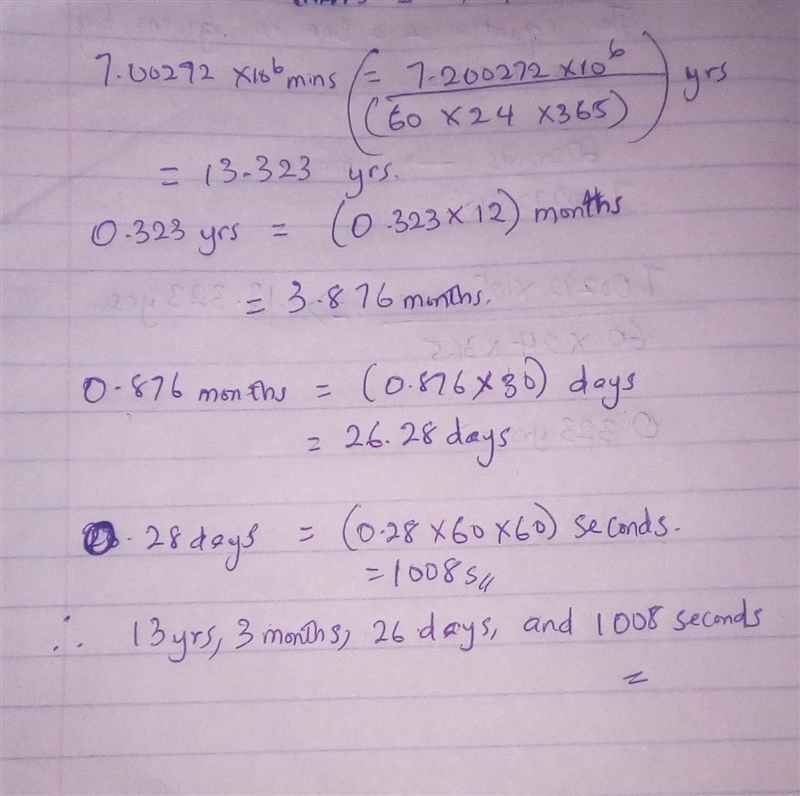 7.00272 ×10⁶ mins (= 7.200272 ×10⁶ / (60 × 24 ×365)) yrs
= 13.323 yrs.
0.323 yrs = (0.323×12) months
= 3.876 months.
0.876 months = (0.876×30) days
= 26.28 days
0.28 days = (0.28 ×60 ×60) seconds.
= 1008 s//
∴ 13 yrs, 3 months, 26 days, and 1008 seconds
=